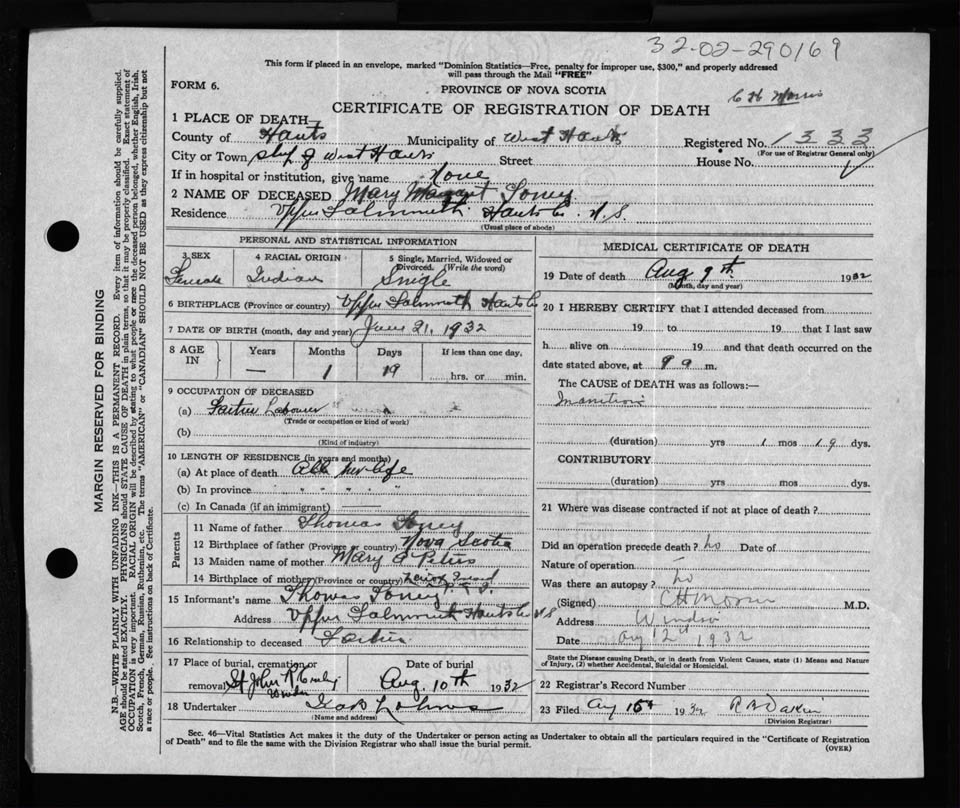 32-02-290169
This form if placed in an envelope, marked "Dominion Statistics—Free, penalty for improper use, $300," and properly addressed
will pass through the Mail "FREE"
FORM 6.
PROVINCE OF NOVA SCOTIA
C H Morris
CERTIFICATE OF REGISTRATION OF DEATH
1 PLACE OF DEATH—
County of Hants Municipality of West Hants Registered No. 1333
(For use of Registrar General only)
City or Town, of West Hants Street House No.
If in hospital or institution, give name None
2 NAME OF DECEASED Mary Margaret Toney
Residence Upper Falmouth Hants Co. N.S.
(Usual place of abode)
PERSONAL AND STATISTICAL INFORMATION
3 SEX 4 RACIAL ORIGIN 5 Single, Married, Widowed or Divorced. (Write the word)
Female Indian Single
6 BIRTHPLACE (Province or country) Upper Falmouth Hants Co
7 DATE OF BIRTH (month, day and year) June 21, 1932
8 AGE IN Years Months Days If less than one day,
— 1 19 hrs. or min.
9 OCCUPATION OF DECEASED
(a) Labourer
(Trade or occupation or kind of work)
(b)
(Kind of industry)
10 LENGTH OF RESIDENCE (in years and months)
(a) At place of death all her life
(b) In province " " " "
(c) In Canada (if an immigrant) —
Parents
11 Name of father Thomas Toney
12 Birthplace of father (Province or country) Nova Scotia
13 Maiden name of mother Mary Peters
14 Birthplace of mother (Province or country) P. E. I.
15 Informant's name Thomas Toney
Address Upper Falmouth Hants Co N S
16 Relationship to deceased Father
17 Place of burial, cremation or removal St John Windsor
Date of burial Aug. 10th 1932
18 Undertaker
(Name and address)
MEDICAL CERTIFICATE OF DEATH
19 Date of death Aug 9th 1932
(Month, day and year)
20 I HEREBY CERTIFY that I attended deceased from
19 to 19 that I last saw
h alive on 19 and that death occurred on the
date stated above, at 9 a m.
The CAUSE of DEATH was as follows:—
Inanition
(duration) yrs 1 mos 19 dys.
CONTRIBUTORY
(duration) yrs mos dys.
21 Where was disease contracted if not at place of death?
Did an operation precede death? no Date of
Nature of operation
Was there an autopsy? no
(Signed) C H Morris M.D.
Address Windsor
Date Aug 12th 1932
State the Disease causing Death, or in death from Violent Causes, state (1) Means and Nature
of Injury, (2) whether Accidental, Suicidal or Homicidal.
22 Registrar's Record Number
23 Filed Aug 15th 1932 R B Dakin
(Division Registrar)
Sec. 46—Vital Statistics Act makes it the duty of the Undertaker or person acting as Undertaker to obtain all the particulars required in the "Certificate of Registration
of Death" and to file the same with the Division Registrar who shall issue the burial permit.
(OVER)
MARGIN RESERVED FOR BINDING
N.B.—WRITE PLAINLY WITH UNFADING INK—THIS IS A PERMANENT RECORD. Every item of information should be carefully supplied.
AGE should be stated EXACTLY. PHYSICIANS should STATE CAUSE OF DEATH in plain terms, so that it may be properly classified. Exact statement of
OCCUPATION is very important. RACIAL ORIGIN will be described by stating to what people or race the deceased person belonged, whether English, Irish,
Scotch, French, German, Russian, Ruthenian, etc. The terms "AMERICAN" or "CANADIAN" SHOULD NOT BE USED as they express citizenship but not
a race or people. See instructions on back of Certificate.